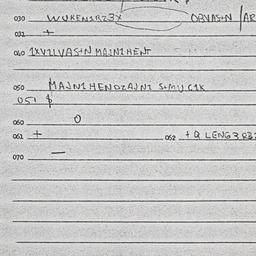 030 WUKENSRZ3X ORVAS+N |AR
031 +
040 1XV2LVAS+N MAJN2HENT
050 MAJN2HENDZAJN2 S+MUC1K
051 $
060 O
061 + 062 +Q LENG3RB
070 —